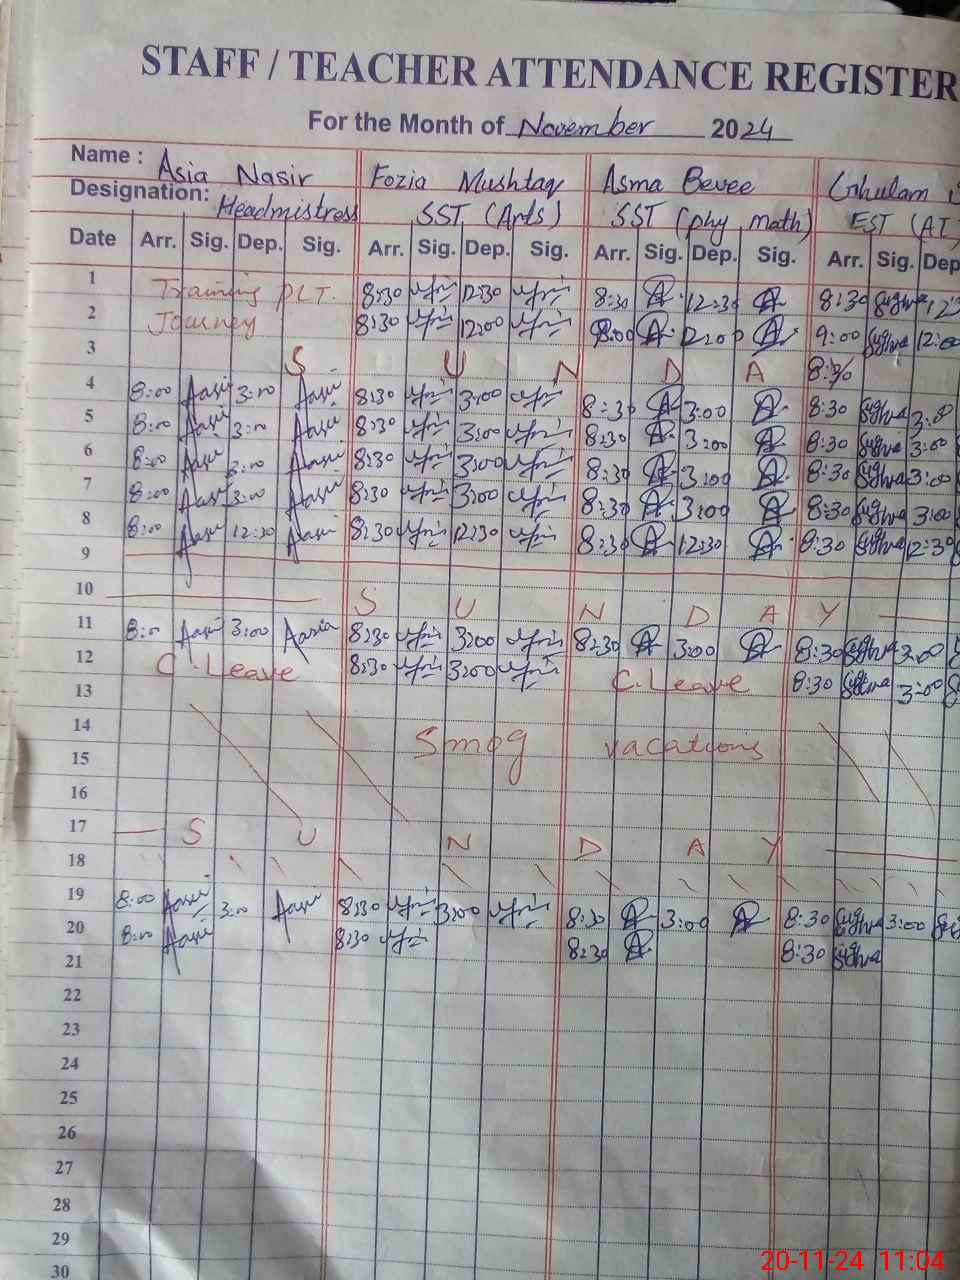 STAFF / TEACHER ATTENDANCE REGISTER
For the Month of November 2024
Name : Asia Nasir Fozia Mushtaq Asma Bevee Ghulam
Designation: Headmistress SST (Arts) SST (phy math) EST (AT)
Date Arr. Sig. Dep. Sig. Arr. Sig. Dep. Sig. Arr. Sig. Dep. Sig. Arr. Sig. Dep
1 Training PLT. 8:30 12:30 8:30 12:30 8:30 Sughra
2 Journey 8:30 12:00 8:00 12:00 9:00 Sughra 12:00
3 S U N D A 8:30
4 8:00 Aasia 3:00 Aasia 8:30 3:00 8:30 3:00 8:30 Sughra 3:00
5 8:00 Aasia 3:00 Aasia 8:30 3:00 8:30 3:00 8:30 Sughra 3:00
6 8:00 Aasia 3:00 Aasia 8:30 3:00 8:30 3:00 8:30 Sughra 3:00
7 8:00 Aasia 3:00 Aasia 8:30 3:00 8:30 3:00 8:30 Sughra 3:00
8 8:00 Aasia 12:30 Aasia 8:30 12:30 8:30 12:30 8:30 Sughra 12:30
9
10 S U N D A Y
11 8:00 Aasia 3:00 Aasia 8:30 3:00 8:30 3:00 8:30 Sughra 3:00
12 C. Leave 8:30 3:00 C. Leave 8:30 Sughra 3:00
13
14 Smog vacations
15
16
17 S U N D A Y
18
19 8:00 Aasia 3:00 Aasia 8:30 3:00 8:30 3:00 8:30 Sughra 3:00
20 8:00 Aasia 8:30 8:30 8:30 Sughra
21
22
23
24
25
26
27
28
29
30
20-11-24 11:04